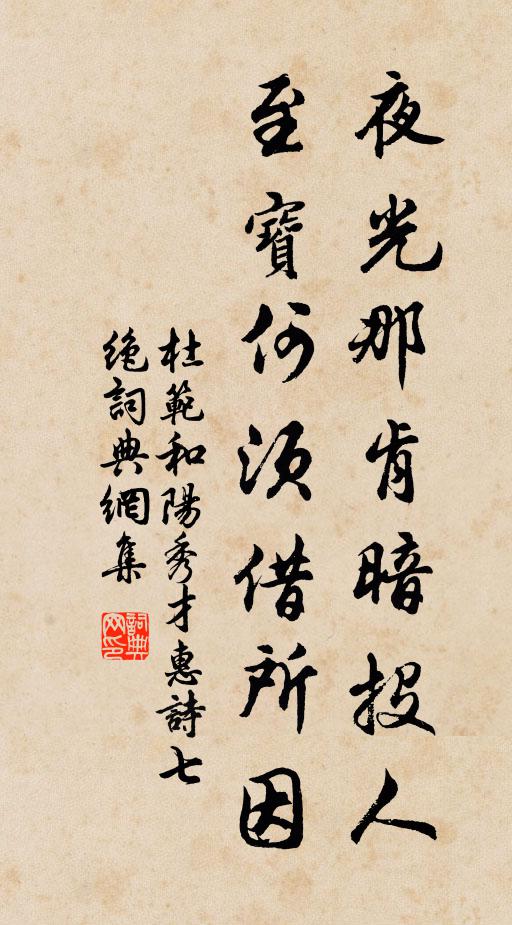 夜光那肯暗投人
至寶何須借所因
杜範和陽秀才惠詩七
絶詞典網集
詞典
网印